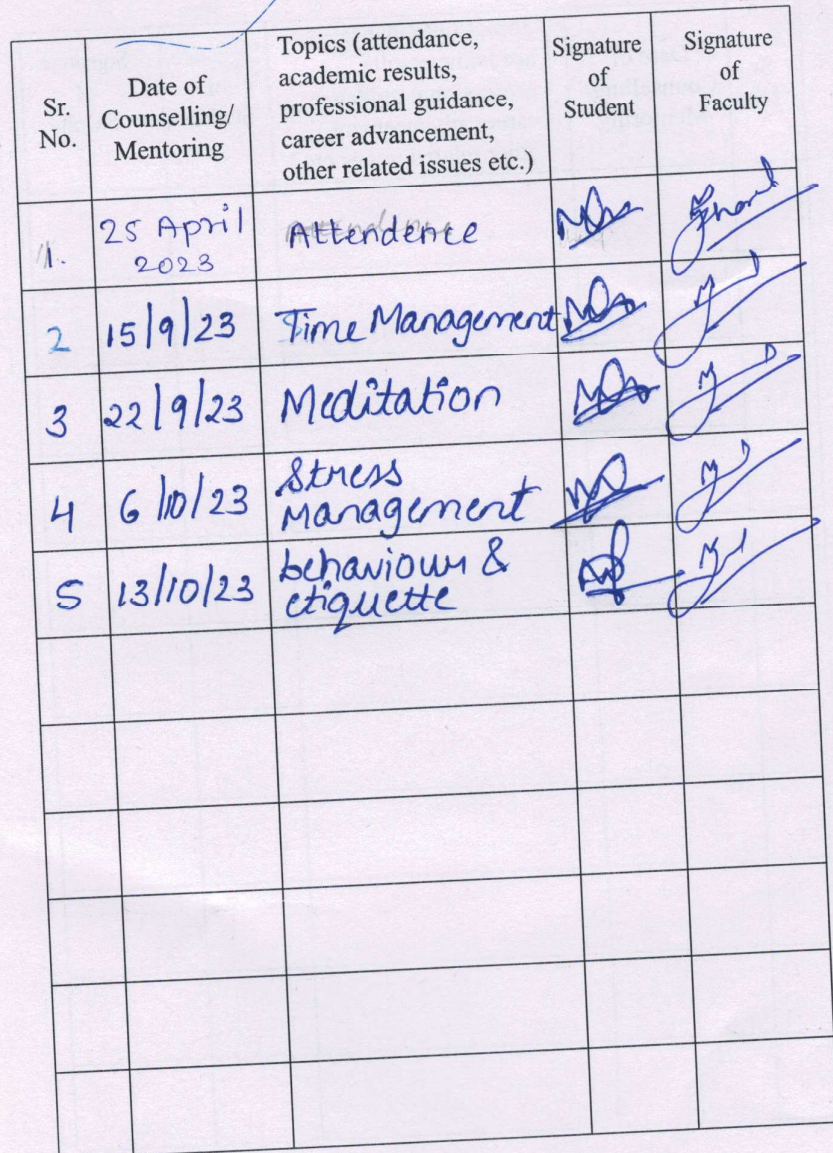 Sr. No.
Date of Counselling/ Mentoring
Topics (attendance, academic results, professional guidance, career advancement, other related issues etc.)
Signature of Student
Signature of Faculty
1. 25 April 2023 Attendence
2 15/9/23 Time Management
3 22/9/23 Meditation
4 6/10/23 Stress Management
5 13/10/23 behaviour & etiquette